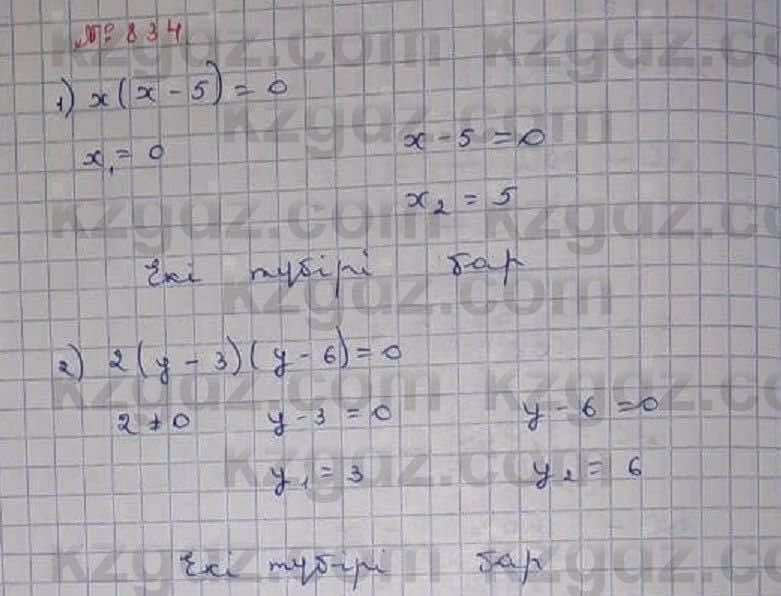 № 834
1) x(x - 5) = 0
x₁ = 0 x - 5 = 0
x₂ = 5
Екі түбірі бар
2) 2(y - 3)(y - 6) = 0
2 ≠ 0 y - 3 = 0 y - 6 = 0
y₁ = 3 y₂ = 6
Екі түбірі бар
kzgdz.com